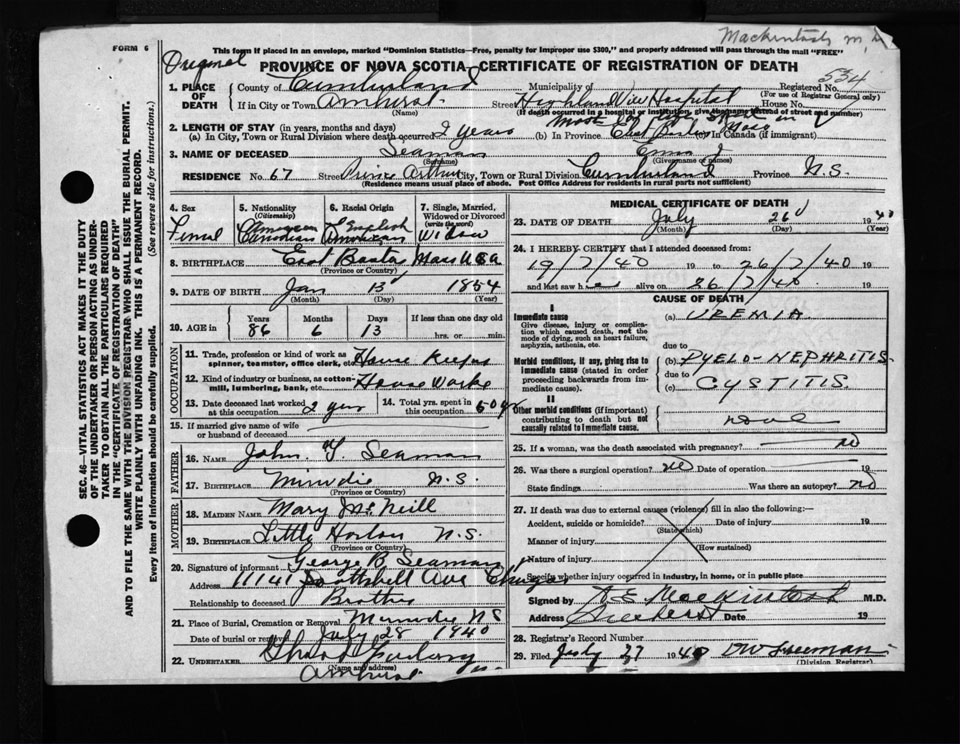 Mackintosh M.D.
FORM 6
This form if placed in an envelope, marked "Dominion Statistics—Free, penalty for improper use $300," and properly addressed will pass through the mail "FREE"
Original
PROVINCE OF NOVA SCOTIA—CERTIFICATE OF REGISTRATION OF DEATH
534
1. PLACE OF DEATH
County of Cumberland Municipality of Registered No.
(For use of Registrar General only)
If in City or Town Amherst. Street Highland View Hospital House No.
(Name) (If death occurred in a hospital or institution, give its name instead of street and number)
2. LENGTH OF STAY (in years, months and days)
(a) In City, Town or Rural Division where death occurred 2 years (b) In Province East Boston Mass In Canada (if immigrant)
3. NAME OF DECEASED Seaman Emma J
(Surname) (Given name or names)
RESIDENCE No. 67 Street Prince Arthur City, Town or Rural Division Cumberland Province N.S.
(Residence means usual place of abode. Post Office Address for residents in rural parts not sufficient)
4. Sex 5. Nationality (Citizenship) 6. Racial Origin 7. Single, Married, Widowed or Divorced (write the word)
Femal American Canadian English American Widow
8. BIRTHPLACE East Boston Mass U S A
(Province or Country)
9. DATE OF BIRTH Jan 13 1854
(Month) (Day) (Year)
10. AGE in Years Months Days If less than one day old
86 6 13 hrs. or min.
OCCUPATION
11. Trade, profession or kind of work as spinner, teamster, office clerk, etc. House Keeper
12. Kind of industry or business, as cotton-mill, lumbering, bank, etc. House Worke
13. Date deceased last worked at this occupation 2 yrs 14. Total yrs. spent in this occupation 50 yr
15. If married give name of wife or husband of deceased
FATHER
16. NAME John Y. Seaman
17. BIRTHPLACE Minudie N.S.
(Province or Country)
MOTHER
18. MAIDEN NAME Mary McNeill
19. BIRTHPLACE Little Horton N.S.
(Province or Country)
20. Signature of informant George B. Seaman
Address 11141 Ave
Relationship to deceased Brother
21. Place of Burial, Cremation or Removal Minudie NS
Date of burial or removal July 28 1940
22. UNDERTAKER
(Name and address)
Amherst
MEDICAL CERTIFICATE OF DEATH
23. DATE OF DEATH July 26 1940
(Month) (Day) (Year)
24. I HEREBY CERTIFY that I attended deceased from:
19/7/40 19 to 26/7/40 19
and last saw h alive on 26/7/40 19
CAUSE OF DEATH
I
Immediate cause (a) UREMIA.
Give disease, injury or complication which caused death, not the mode of dying, such as heart failure, asphyxia, asthenia, etc.
due to
Morbid conditions, if any, giving rise to immediate cause (stated in order proceeding backwards from immediate cause). (b) PYELO-NEPHRITIS.
due to
(c) CYSTITIS.
II
Other morbid conditions (if important) contributing to death but not causally related to immediate cause. none
25. If a woman, was the death associated with pregnancy? no
26. Was there a surgical operation? no Date of operation 19
State findings Was there an autopsy? no
27. If death was due to external causes (violence) fill in also the following:—
Accident, suicide or homicide? Date of injury 19
(State which)
Manner of injury
(How sustained)
Nature of injury
Specify whether injury occurred in industry, in home, or in public place
Signed by A E Mackintosh M.D.
Address Amherst Date 19
28. Registrar's Record Number
29. Filed July 27 1940 Freeman
(Division Registrar)
SEC. 46—VITAL STATISTICS ACT MAKES IT THE DUTY
OF THE UNDERTAKER OR PERSON ACTING AS UNDER-
TAKER TO OBTAIN ALL THE PARTICULARS REQUIRED
IN THE "CERTIFICATE OF REGISTRATION OF DEATH"
AND TO FILE THE SAME WITH THE DIVISION REGISTRAR WHO SHALL ISSUE THE BURIAL PERMIT.
WRITE PLAINLY WITH UNFADING INK. THIS IS A PERMANENT RECORD.
Every item of information should be carefully supplied. (See reverse side for instructions.)